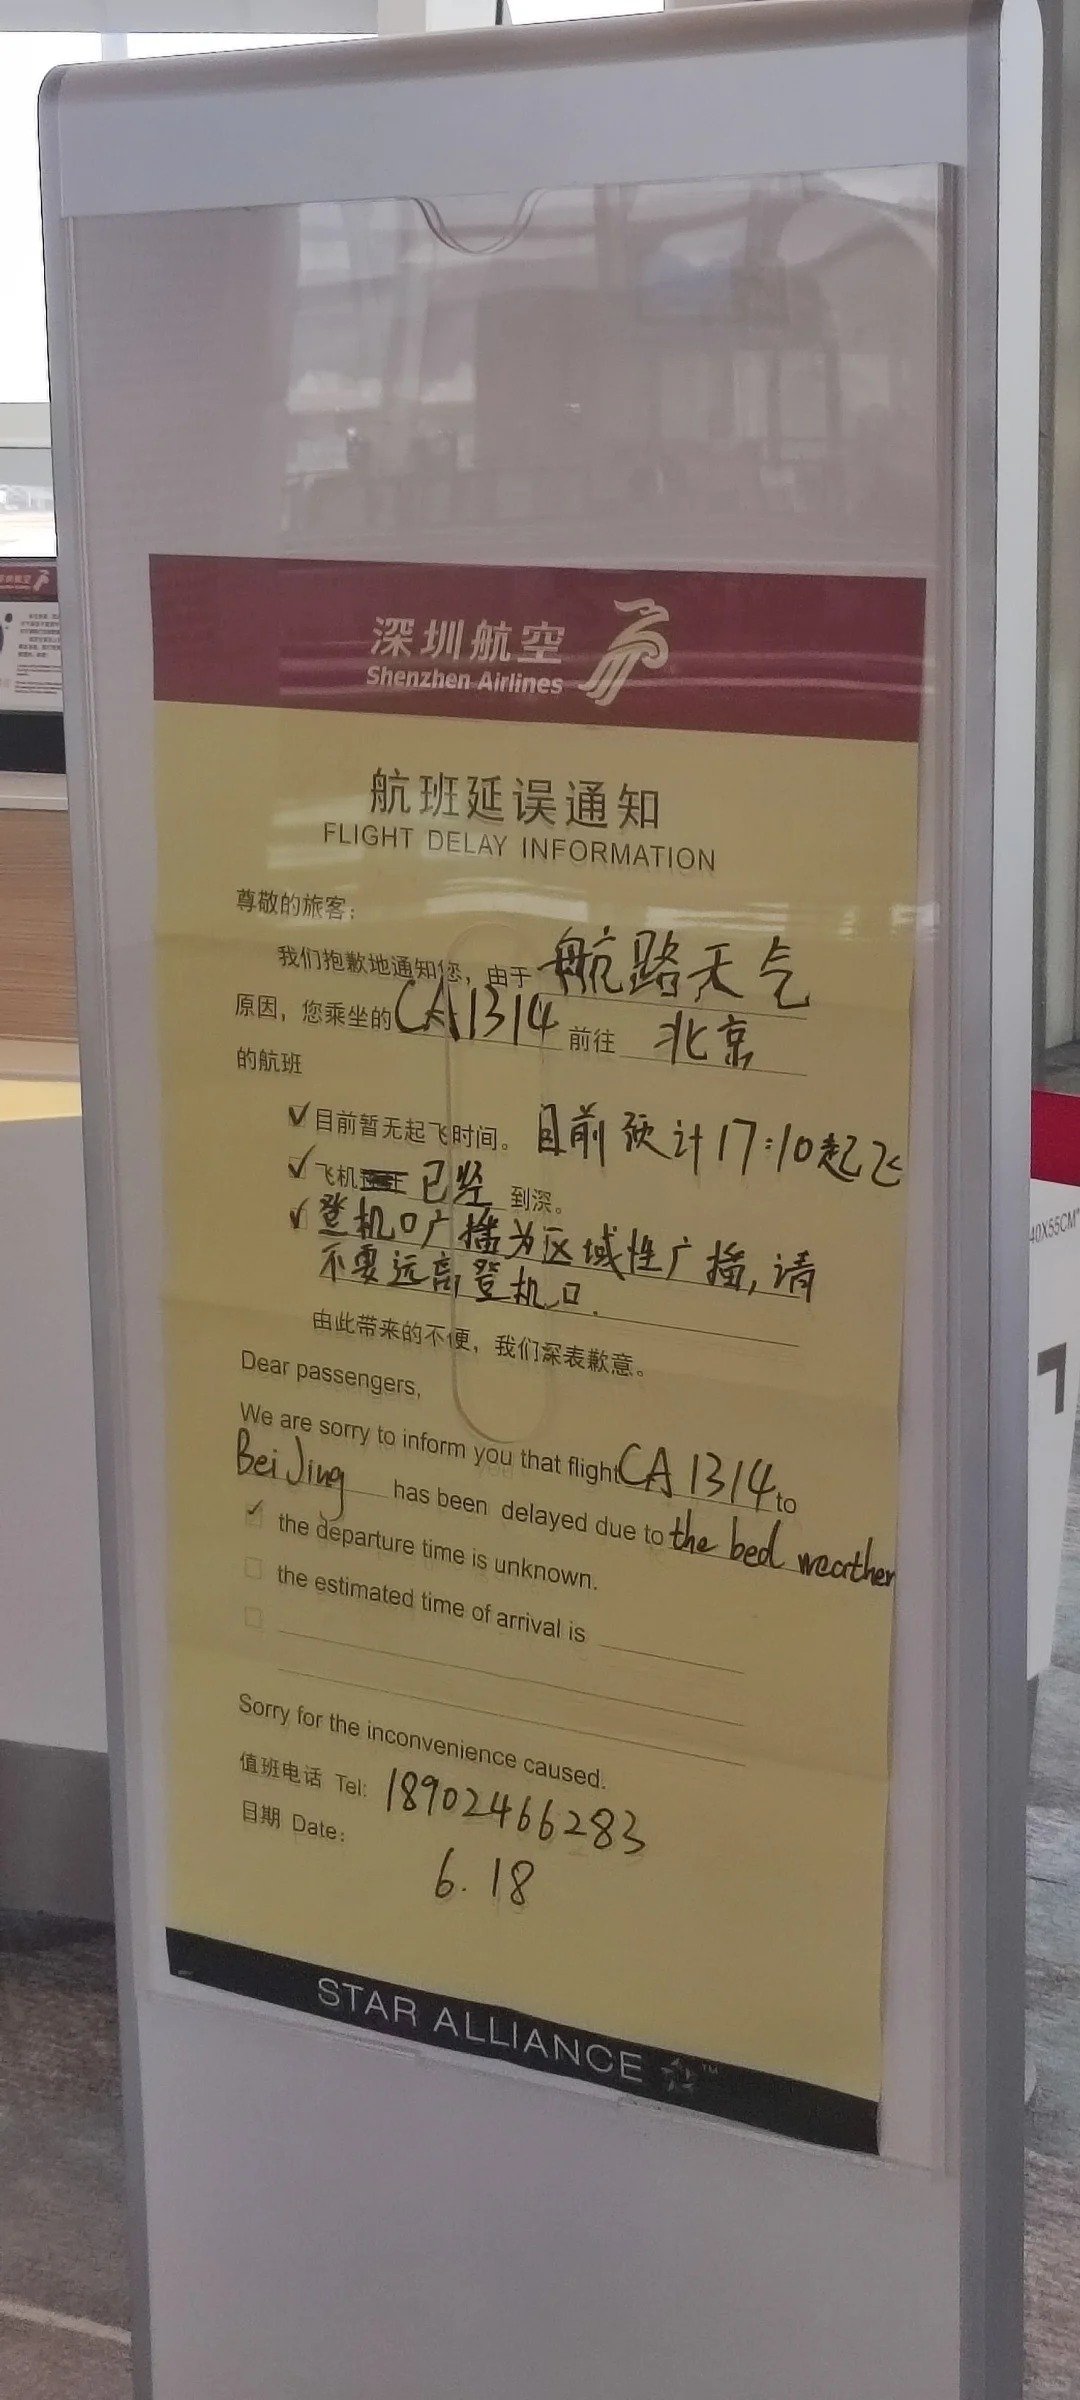 深圳航空
Shenzhen Airlines
航班延误通知
FLIGHT DELAY INFORMATION
尊敬的旅客：
我们抱歉地通知您，由于 航路天气
原因，您乘坐的 CA1314 前往 北京
的航班
✓目前暂无起飞时间。目前预计17:10起飞
✓飞机 已经 到深。
✓登机口广播为区域性广播，请
不要远离登机口.
由此带来的不便，我们深表歉意。
Dear passengers,
We are sorry to inform you that flight CA 1314 to
BeiJing has been delayed due to the bed weather
✓ the departure time is unknown.
□ the estimated time of arrival is
□
Sorry for the inconvenience caused.
值班电话 Tel: 18902466283
日期 Date:
6.18
STAR ALLIANCE ™
40X55CM